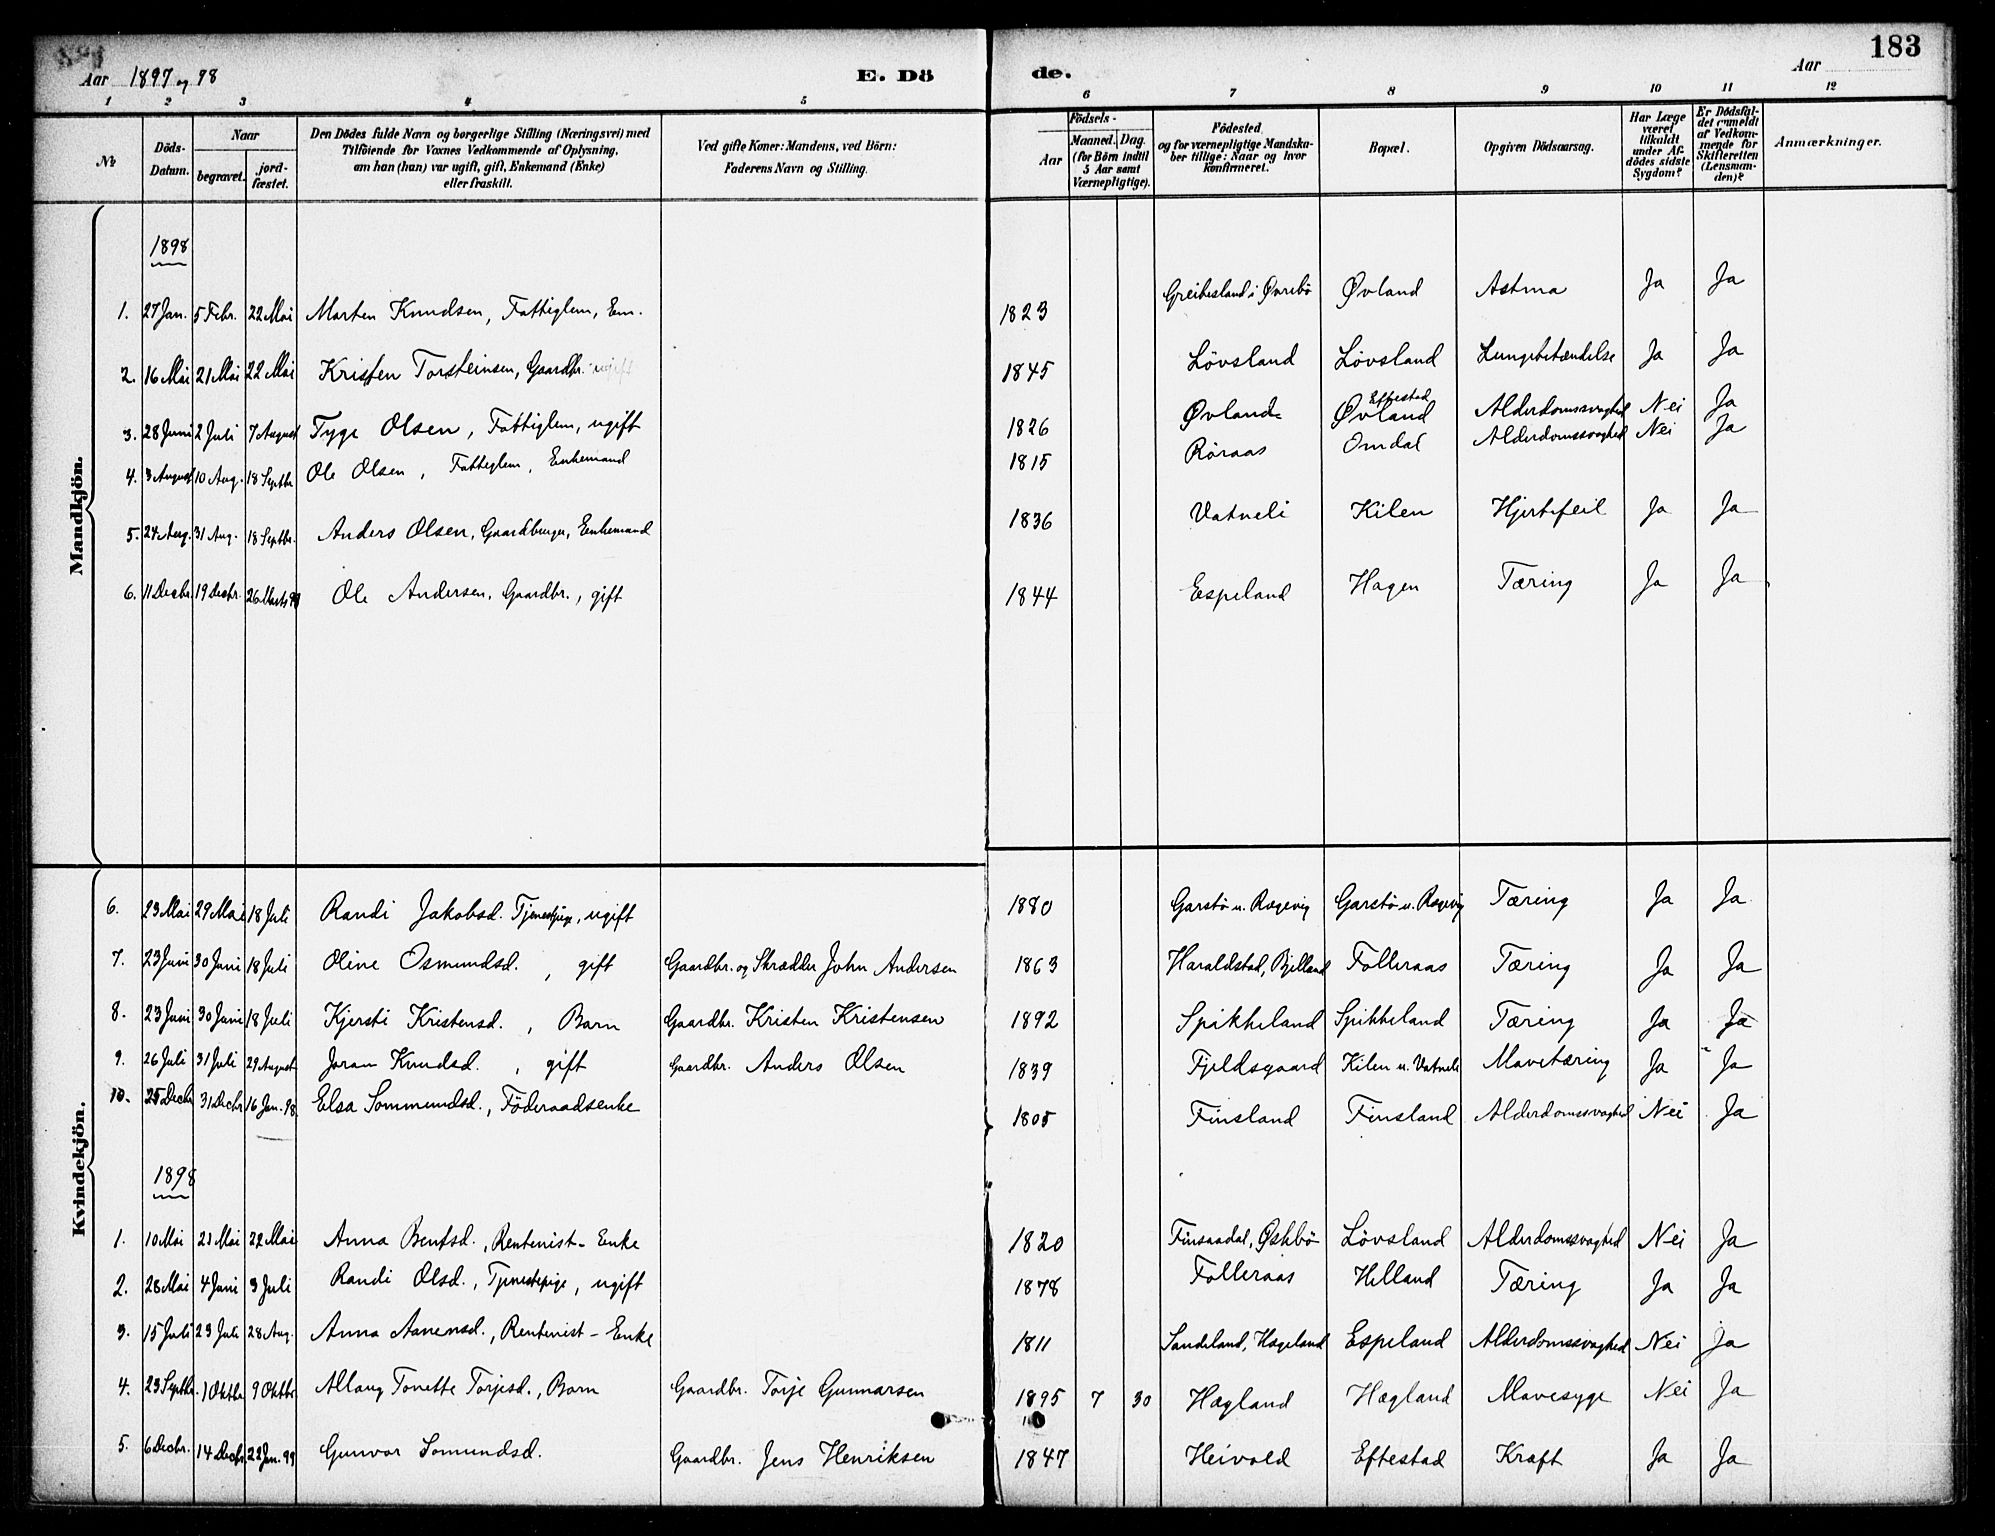 183
Aar 1897 og 98 E. Dö de. Aar
1 2 3 4 5 6 7 8 9 10 11 12
No
Döds-Datum.
Naar
begravet.
jord-fæstet.
Den Dödes fulde Navn og borgerlige Stilling (Næringsvei) med
Tilföiende for Voxnes Vedkommende af Oplysning,
om han (hun) var ugift, gift, Enkemand (Enke)
eller fraskilt.
Ved gifte Koner: Mandens, ved Börn:
Faderens Navn og Stilling.
Födsels-
Aar
Maaned. Dag.
(for Börn indtil
5 Aar samt
Værnepligtige).
Födested,
og for værnepligtige Mandska-
ber tillige: Naar og hvor
konfirmeret.
Bopæl.
Opgiven Dödsaarsag.
Har Læge
været
tilkaldt
under Af-
dödes sidste
Sygdom?
Er Dödsfal-
det anmeldt
af Vedkom-
mende for
Skifteretten
(Lensman-
den)?
Anmærkninger.
Mandkjön.
1898
1. 27 Jan. 5 Febr. 22 Mai Morten Knudsen, Fattiglem, Em. 1823 Greibesland i Øvrebö Øvland Astma Ja Ja
2. 16 Mai 21 Mai 22 Mai Kristen Torsteinsen, Gaardbr. ugift 1845 Lövsland Lövsland Lungebetændelse Ja Ja
3. 28 Juni 2 Juli 7 August Tyge Olsen, Fattiglem, ugift 1826 Øvland Eftestad Øvland Alderdomssvaghed Nei Ja
4. 3 August 10 Aug. 18 Septbr. Ole Olsen, Fattiglem, Enkemand 1815 Röraas Omdal Alderdomssvaghed Nei Ja
5. 24 Aug. 31 Aug. 18 Septbr. Anders Olsen, Gaardbruger, Enkemand 1836 Vatneli Kilen Hjertefeil Ja Ja
6. 11 Decbr. 19 Decbr. 26 Marts 99 Ole Andersen, Gaardbr., gift 1844 Espeland Hagen Tæring Ja Ja
Kvindekjön.
6. 23 Mai 29 Mai 18 Juli Randi Jakobsd. Tjenestpige, ugift 1880 Garstö u. Ragevig Garstö u. Ragevig Tæring Ja Ja
7. 23 Juni 30 Juni 18 Juli Oline Osmundsd., gift Gaardbr. og Skrædder John Andersen 1863 Haraldstad, Bjelland Folleraas Tæring Ja Ja
8. 23 Juni 30 Juni 18 Juli Kjersti Kristensd., Barn Gaardbr. Kristen Kristensen 1892 Spikkeland Spikkeland Tæring Ja Ja
9. 26 Juli 31 Juli 29 August Joran Knudsd., gift Gaardbr. Anders Olsen 1839 Fjeldsgaard Kilen u. Vatneli Mavetæring Ja Ja
10. 25 Decbr 31 Decbr 16 Jan. 98 Elsa Sommundsd., Föderaadsenke 1805 Finsland Finsland Alderdomssvaghed Nei Ja
1898
1. 10 Mai 21 Mai 22 Mai Anna Bentsd., Rentenist-Enke 1820 Finsaadal, Øskbö Lövsland Alderdomssvaghed Nei Ja
2. 28 Mai 4 Juni 3 Juli Randi Olsd., Tjenestepige, ugift 1878 Folleraas Helland Tæring Ja Ja
3. 15 Juli 23 Juli 28 Aug. Anna Aanensd., Rentenist-Enke 1811 Sandeland, Hægeland Espeland Alderdomssvaghed Nei Ja
4. 23 Septbr. 1 Oktbr 9 Oktbr. Allaug Tonette Torjesd., Barn Gaardbr. Torje Gunnarsen 1895 7 30 Hægland Hægland Mavesyge Nei Ja
5. 6 Decbr. 14 Decbr 22 Jan. 99 Gunvor Somundsd. Gaardbr. Jens Henriksen 1847 Heivold Eftestad Kræft Ja Ja